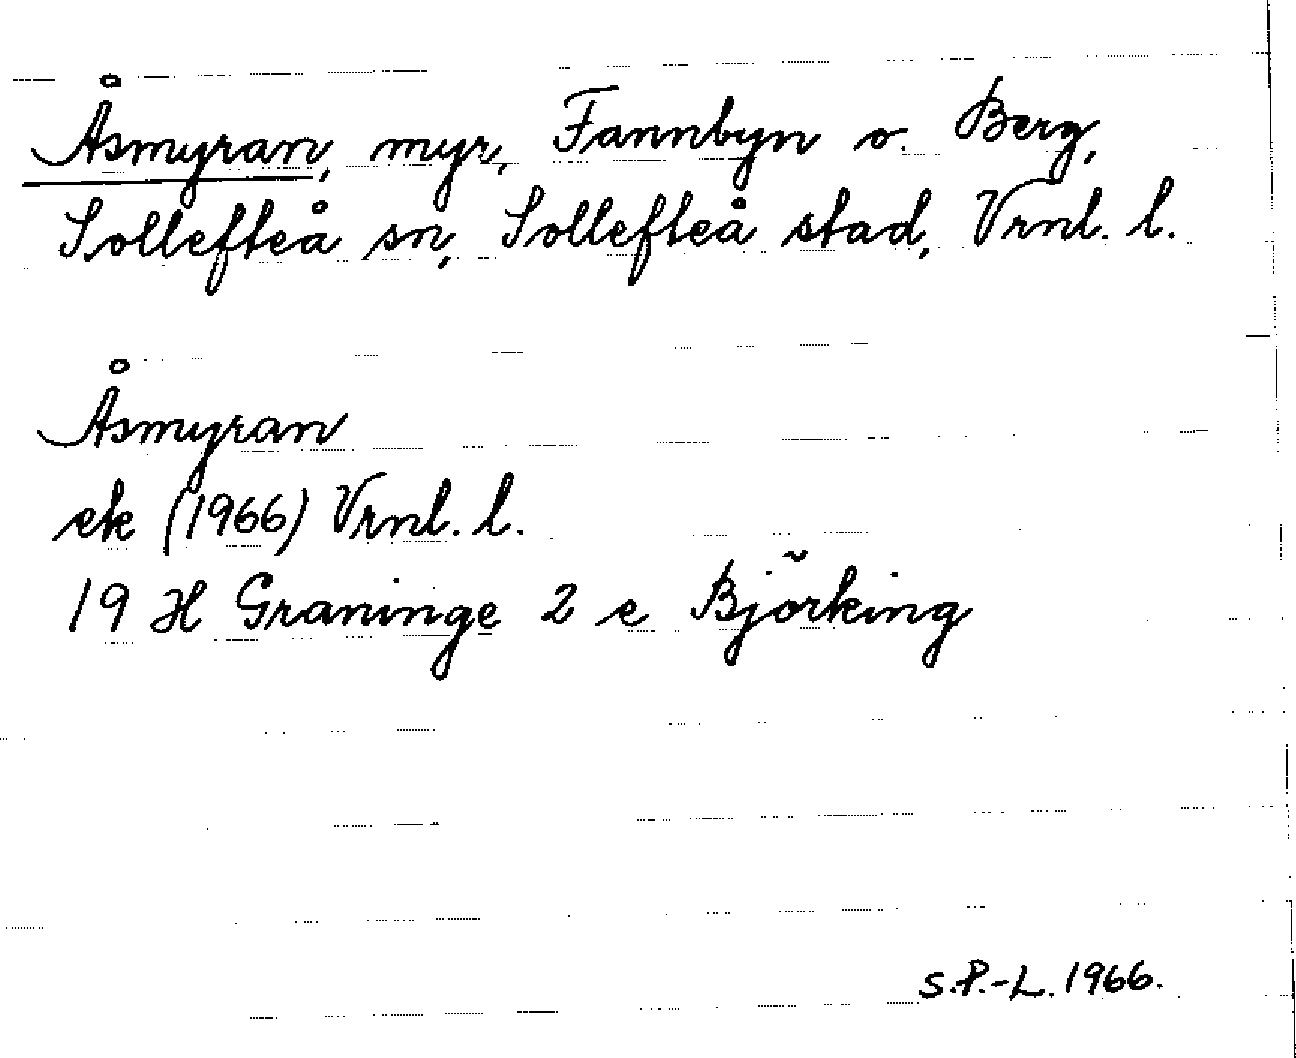 Åsmyran, myr, Fannbyn o. Berg,
Sollefteå sn, Sollefteå stad, Vrnl. l.
Åsmyran
ek (1966) Vrnl. l.
19 H Graninge 2 e Björking
S.P.-L. 1966.